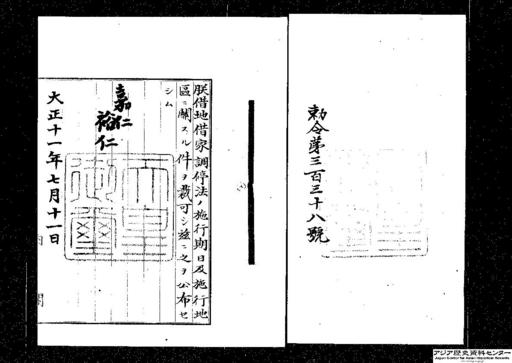 勅令第三百三十八號
朕借地借家調停法ノ施行期日及施行地
區ニ關スル件ヲ裁可シ茲ニ之ヲ公布セ
シム
嘉仁
裕仁
大正十一年七月十一日
アジア歴史資料センター
Japan Center for Asian Historical Records